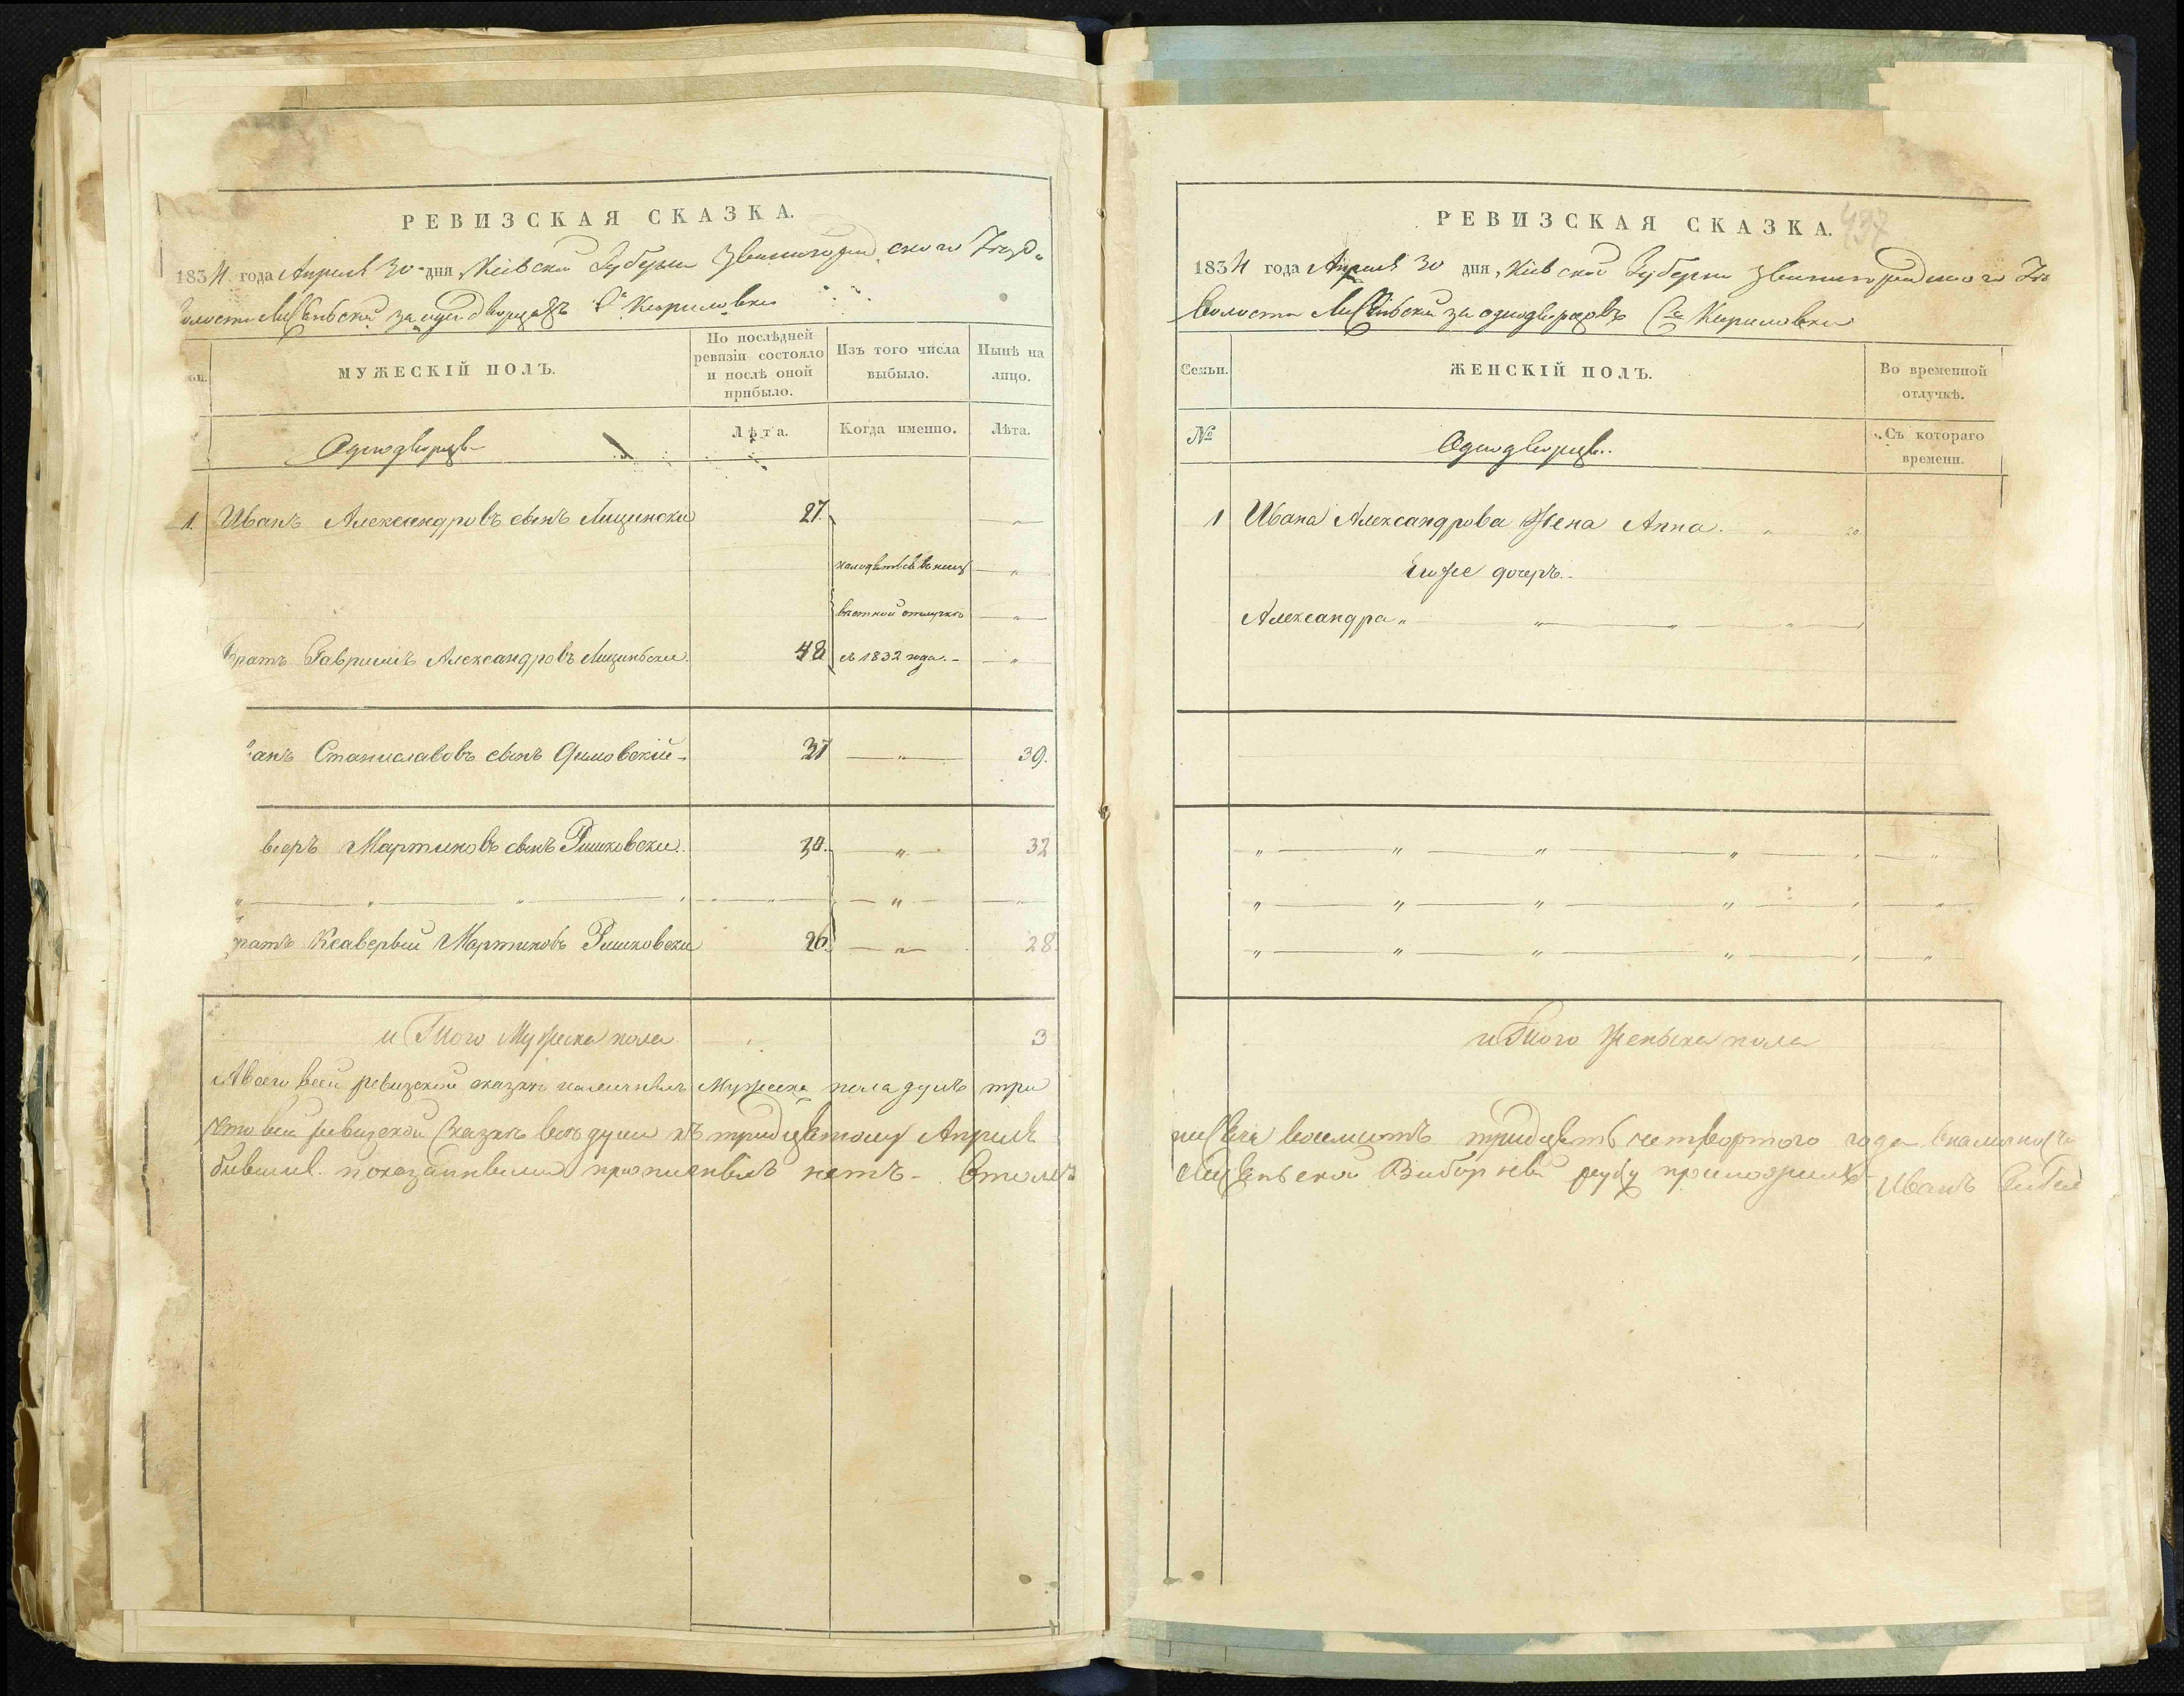 РЕВИЗСКАЯ СКАЗКА.
1834 года Апреля 30 дня, Кіевской Губерніи Звенигородского
волости Лисянской за однодворцовъ Кириловки
МУЖЕСКІЙ ПОЛЪ.
По послѣдней ревизіи состояло и послѣ оной прибыло.
Изъ того числа выбыло.
Нынѣ на лицо.
Лѣта.
Когда именно.
Лѣта.
Однодворцы
1. Иванъ Александровъ сынъ Лищински 27.
находяться въ неиз
вѣстной отлучкѣ
Братъ Гаврилъ Александровъ Лищиньски. 48 съ 1832 года.
анъ Станиславовъ сынъ 37 — „ — 39.
веръ Мартиновъ сынъ Ришковски. 30. — „ — 32
„ — „ — „ — „ — „
ратъ Ксаверый Мартиновъ Ришковски 26. — „ — 28.
и Того Мужеска пола 3
А всего в сей ревизской сказкѣ наличныхъ Мужеска пола душъ три
Что в сей ревизской сказкѣ всѣ души къ тридцятому Апреля
показанныи прописныхъ нетъ.
РЕВИЗСКАЯ СКАЗКА.
497
1834 года Апреля 30 дня, Кіевской Губерніи Звенигородского
волости Лисянской за однодворцовъ Кириловки
Семьи.
ЖЕНСКІЙ ПОЛЪ.
Во временной отлучкѣ.
№
Однодворцы.
Съ котораго времени.
1 Ивана Александрова Жена Анна.
Ихже дочерь.
Александра „ — „ — „ — „
„ — „ — „ — „ — „ — „
„ — „ — „ — „ — „ — „
„ — „ — „ — „ — „ — „
и Того Женьска пола
тридцять четвертого года
Виборный руку приложилъ Иванъ